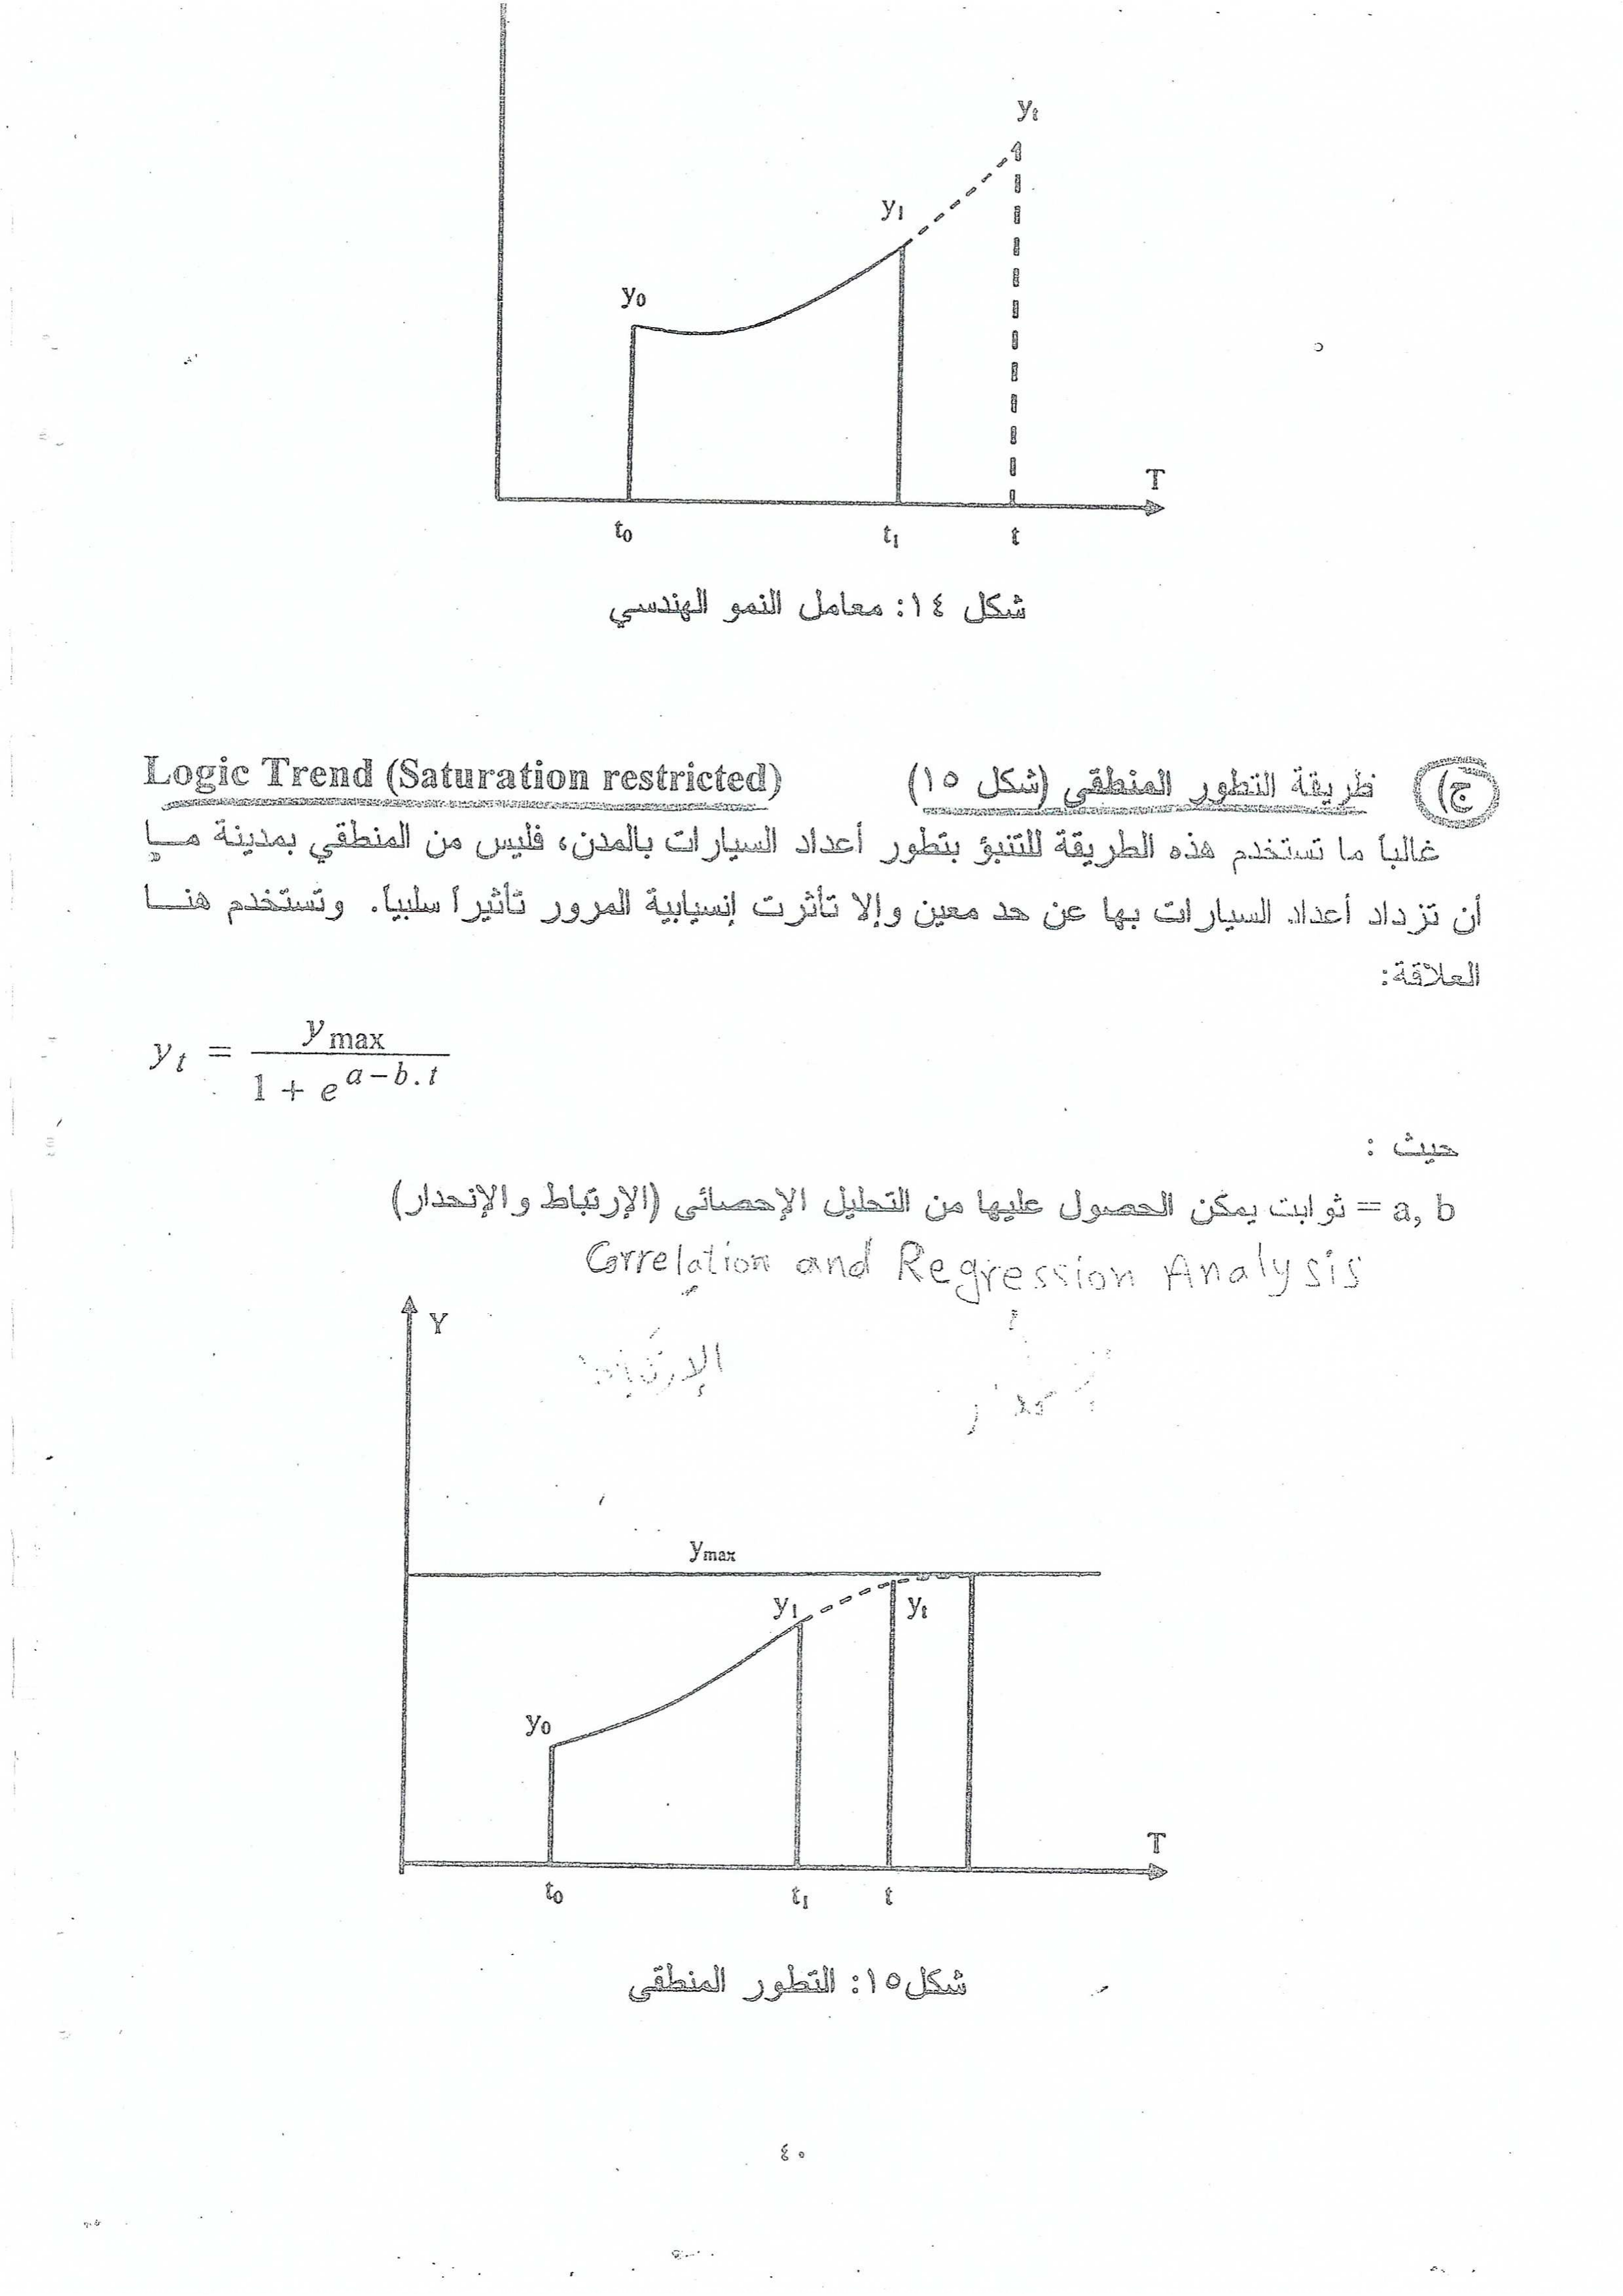 yₜ
y₁
y₀
T
t₀ t₁ t
شكل ١٤: معامل النمو الهندسي
ج) طريقة التطور المنطقي (شكل ١٥) Logic Trend (Saturation restricted)
غالباً ما تستخدم هذه الطريقة للتنبؤ بتطور أعداد السيارات بالمدن، فليس من المنطقي بمدينة ما
أن تزداد أعداد السيارات بها عن حد معين وإلا تأثرت إنسيابية المرور تأثيراً سلبياً. وتستخدم هنا
العلاقة:
yₜ = y_max / (1 + e^(a − b.t))
حيث :
a, b = ثوابت يمكن الحصول عليها من التحليل الإحصائى (الإرتباط والإنحدار)
Correlation and Regression Analysis
Y
الإرتباط
y_max
y₁ yₜ
y₀
T
t₀ t₁ t
شكل١٥: التطور المنطقى
٤٠